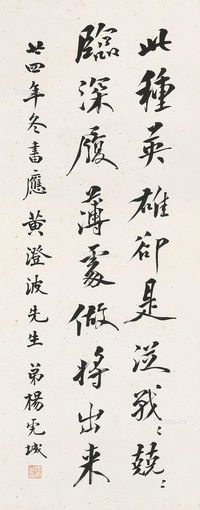 此種英雄卻是從戰〻兢〻
臨深履薄處做將出来
廿四年冬書應黃澄波先生 弟楊虎城